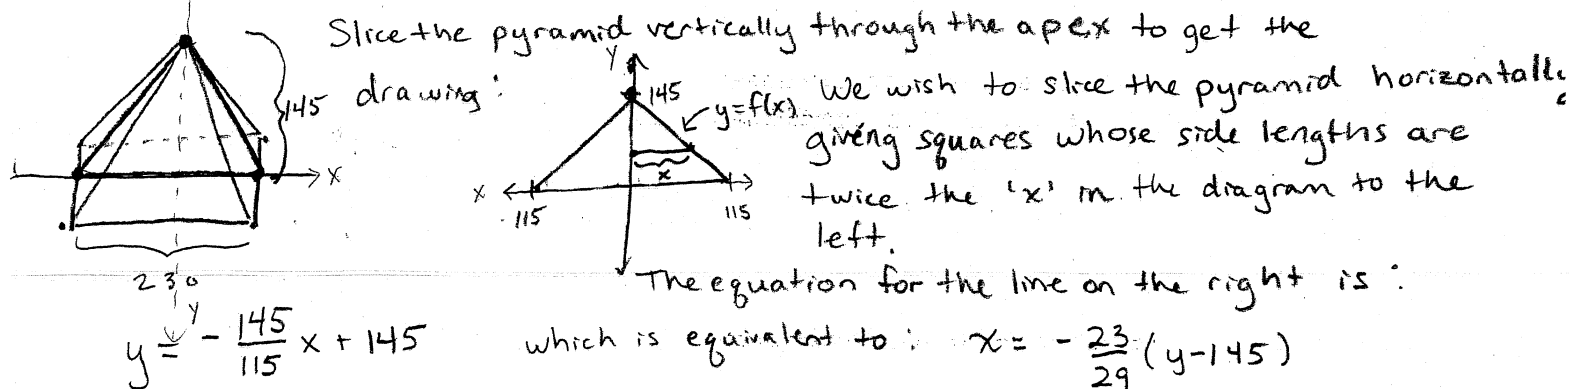 Slice the pyramid vertically through the apex to get the
drawing:
145
x
230
y
y
145
y=f(x)
x
x
115
115
We wish to slice the pyramid horizontally,
giving squares whose side lengths are
twice the 'x' in the diagram to the
left.
The equation for the line on the right is:
y = - 145/115 x + 145 which is equivalent to: x = - 23/29 (y-145)